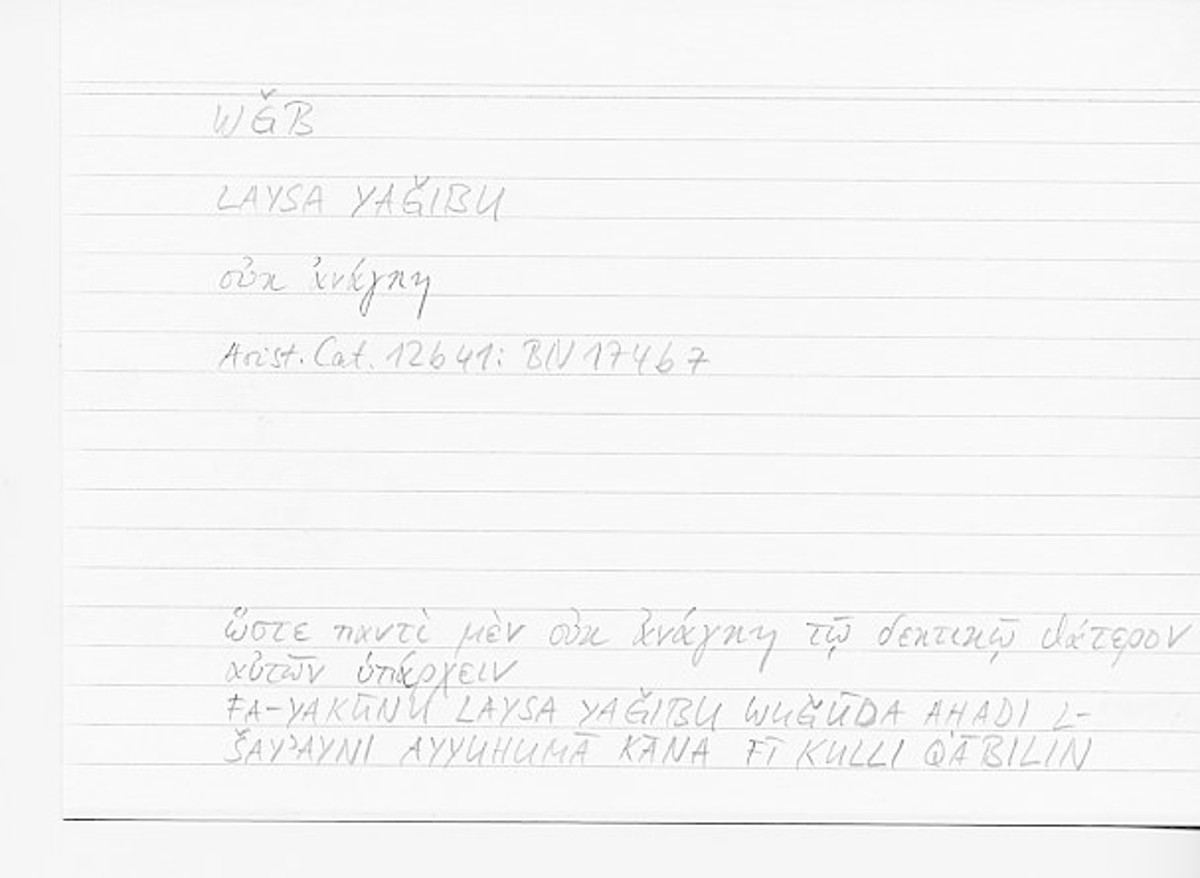 WǦB
LAYSA YAǦIBU
οὐκ ἀνάγκη
Arist. Cat. 12b41: BN 174b7
ὥστε παντὶ μὲν οὐκ ἀνάγκη τῷ δεκτικῷ θάτερον
αὐτῶν ὑπάρχειν
FA-YAKŪNU LAYSA YAǦIBU WUǦŪDA AHADI L-
ŠAYʾAYNI AYYUHUMĀ KĀNA FĪ KULLI QĀBILIN